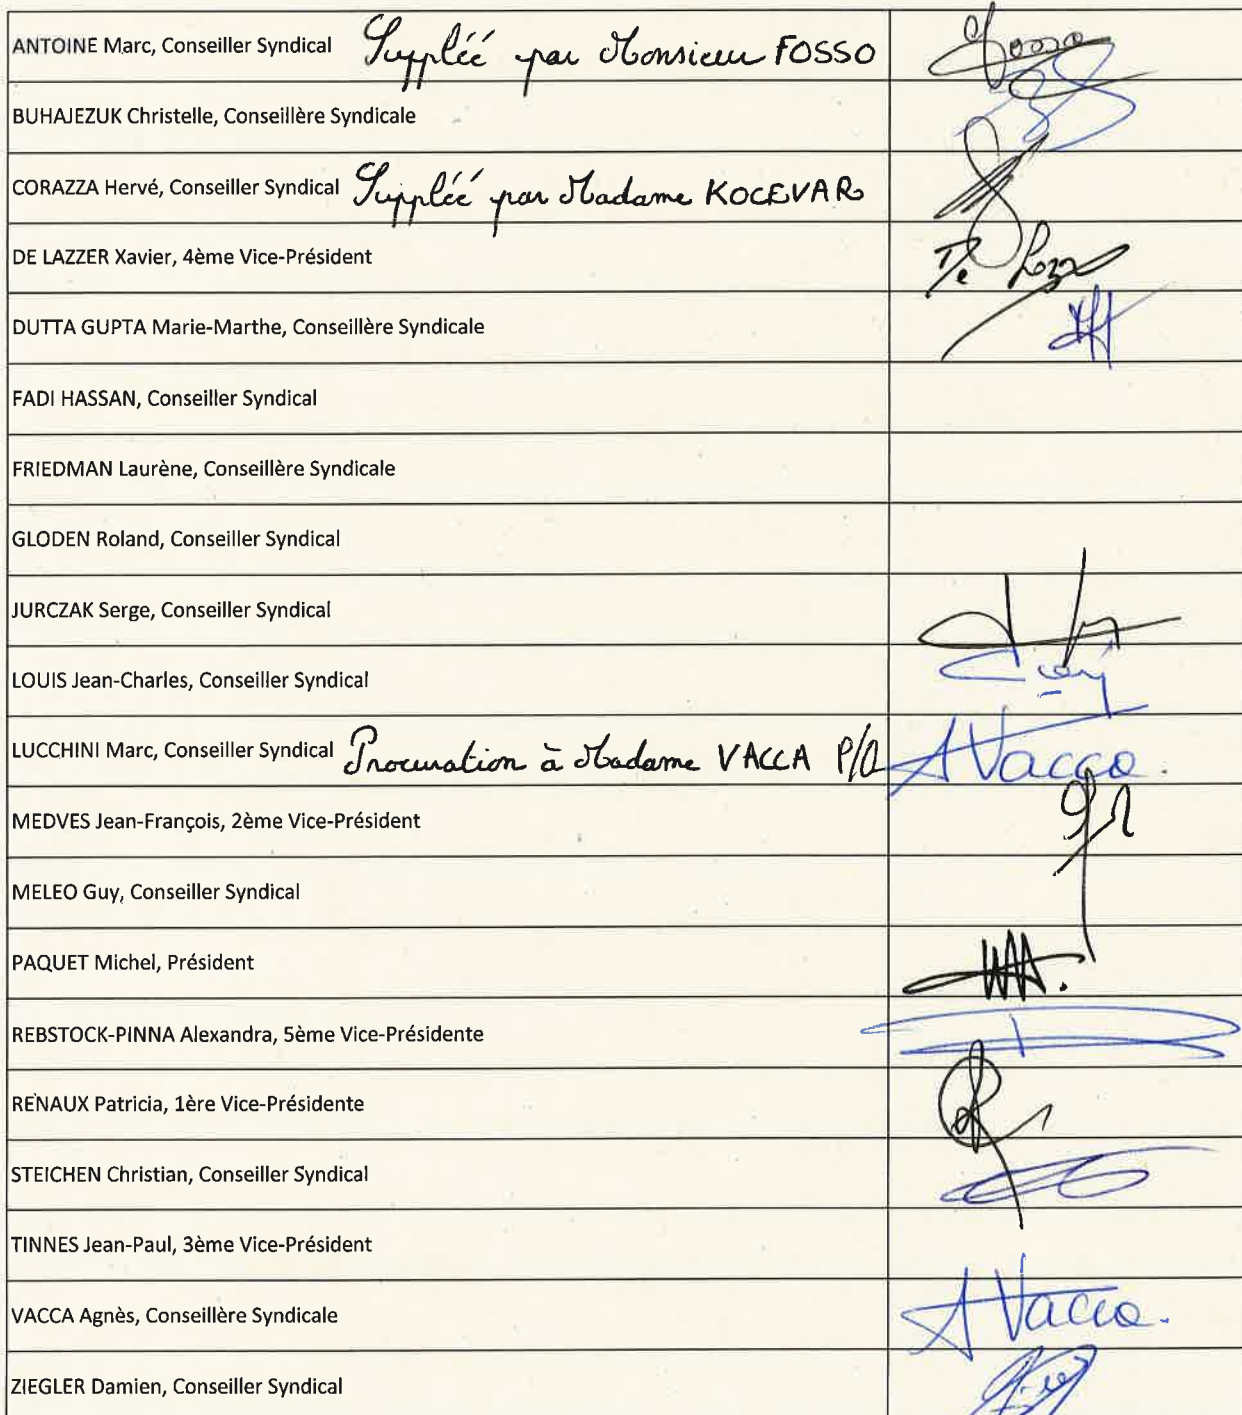 ANTOINE Marc, Conseiller Syndical Suppléé par Monsieur FOSSO Fosso
BUHAJEZUK Christelle, Conseillère Syndicale
CORAZZA Hervé, Conseiller Syndical Suppléé par Madame KOCEVAR
DE LAZZER Xavier, 4ème Vice-Président
DUTTA GUPTA Marie-Marthe, Conseillère Syndicale
FADI HASSAN, Conseiller Syndical
FRIEDMAN Laurène, Conseillère Syndicale
GLODEN Roland, Conseiller Syndical
JURCZAK Serge, Conseiller Syndical
LOUIS Jean-Charles, Conseiller Syndical
LUCCHINI Marc, Conseiller Syndical Procuration à Madame VACCA P/O A Vacca.
MEDVES Jean-François, 2ème Vice-Président
MELEO Guy, Conseiller Syndical
PAQUET Michel, Président
REBSTOCK-PINNA Alexandra, 5ème Vice-Présidente
RENAUX Patricia, 1ère Vice-Présidente
STEICHEN Christian, Conseiller Syndical
TINNES Jean-Paul, 3ème Vice-Président
VACCA Agnès, Conseillère Syndicale A Vacca.
ZIEGLER Damien, Conseiller Syndical